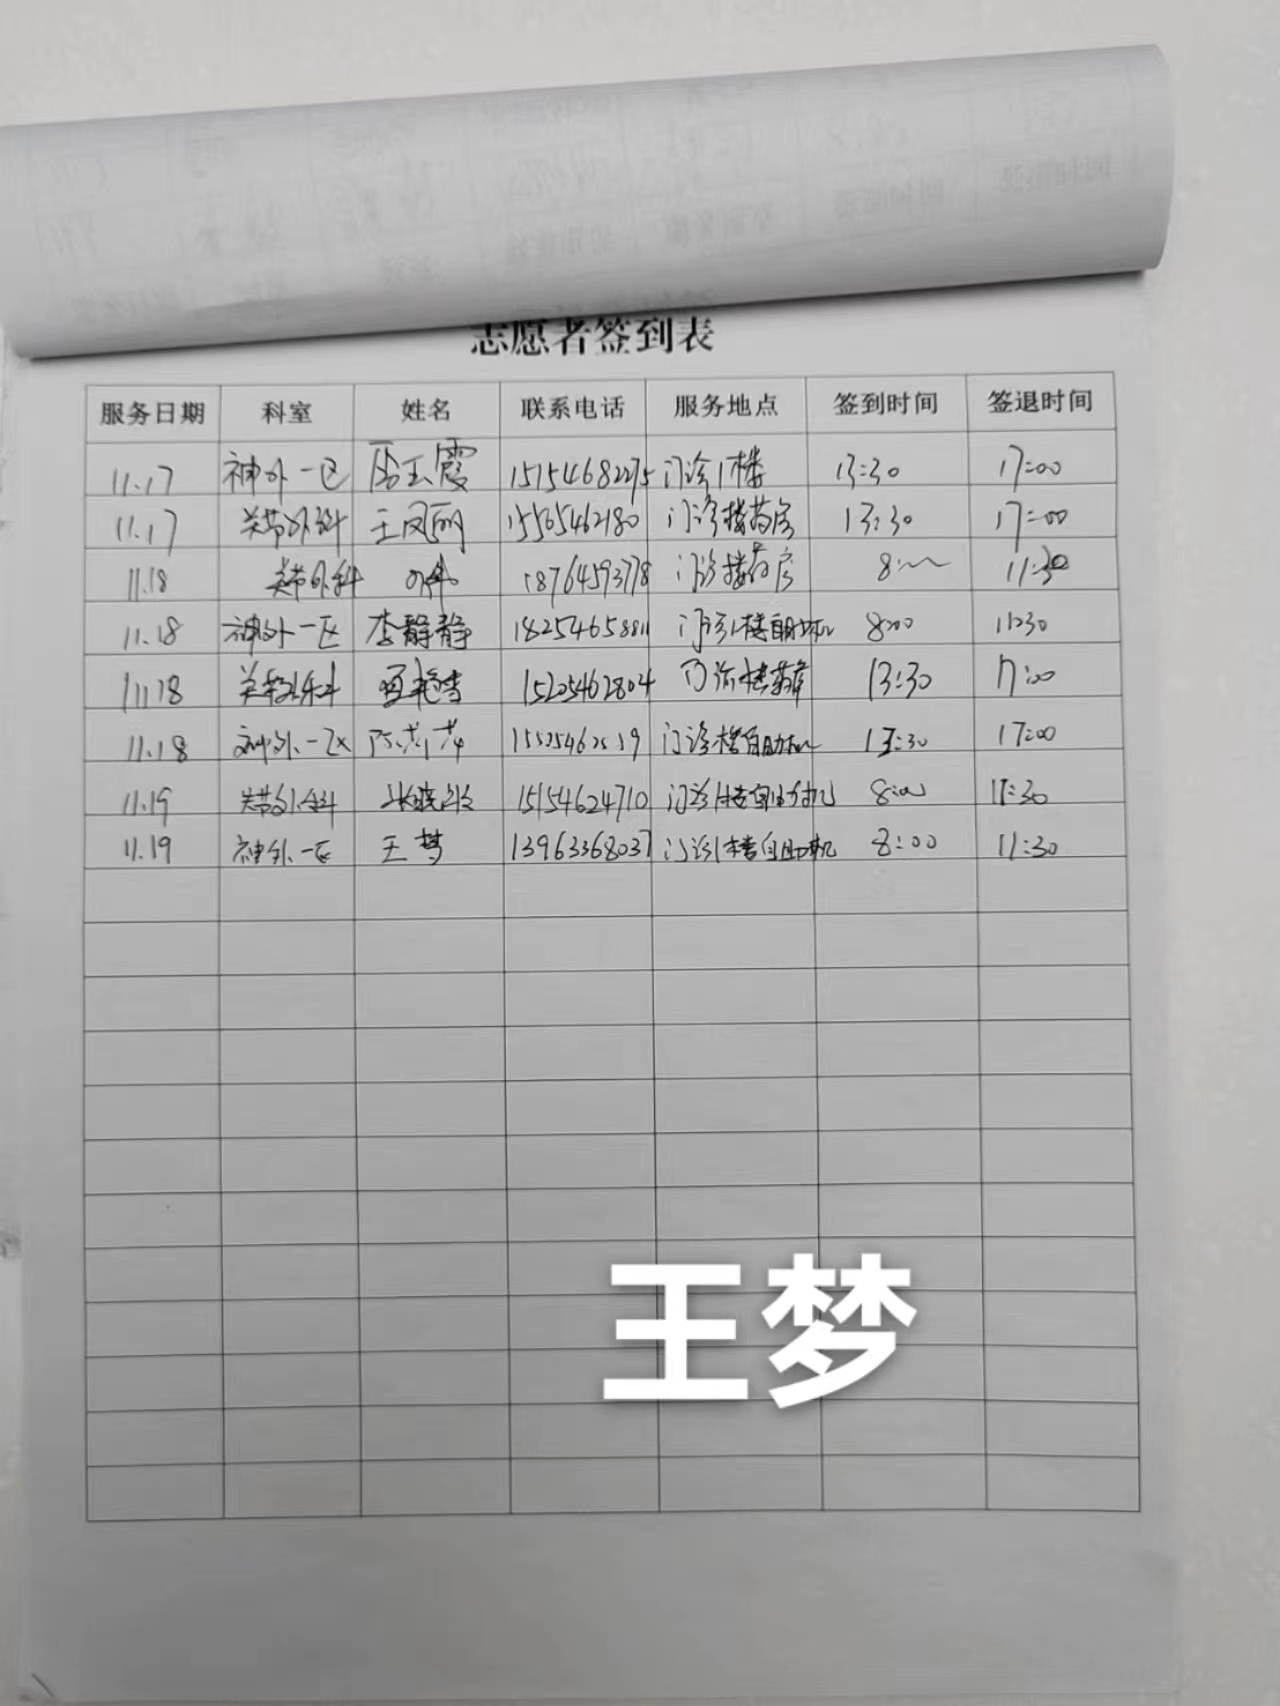 志愿者签到表
服务日期 科室 姓名 联系电话 服务地点 签到时间 签退时间
11.17 神外一区 玉霞 15154682275 门诊1楼 13:30 17:00
11.17 关节外科 王凤丽 15565462180 门诊楼药房 13:30 17:00
11.18 关节外科 18764593778 门诊楼药房 11:30
11.18 神外一区 李静静 18254658811 门诊1楼自助机 8:00 11:30
11.18 关节外科 15205462804 门诊楼药房 13:30 17:00
11.18 神外一区 门诊楼自助机 13:30 17:00
11.19 关节外科 15154624710 门诊1楼自助机 8:00 11:30
11.19 神外一区 王梦 13963368037 门诊1楼自助机 8:00 11:30
王梦